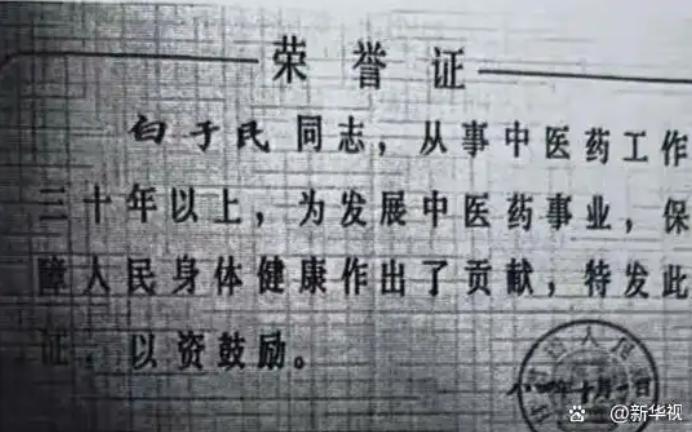 荣誉证
白于民同志，从事中医药工作
三十年以上，为发展中医药事业，保
障人民身体健康作出了贡献，特发此
证，以资鼓励。
十月一日
@新华视